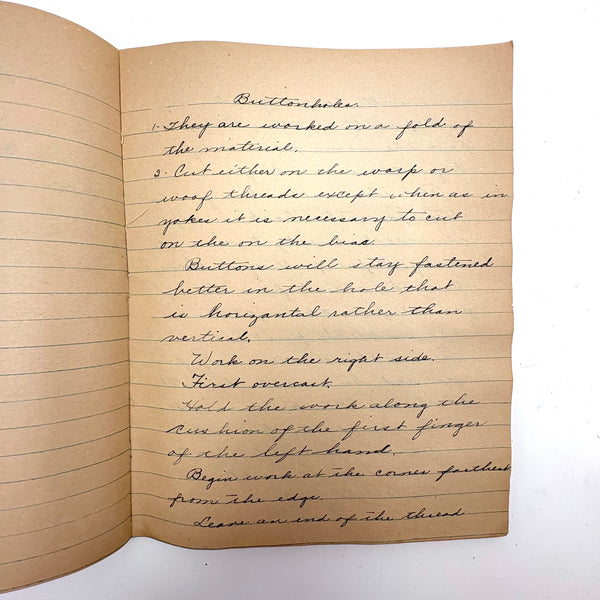 Buttonholes.
1- They are worked on a fold of
the material.
2- Cut either on the warp or
woof threads except when as in
yokes it is necessary to cut
on the on the bias.
Buttons will stay fastened
better in the hole that
is horizantal rather than
vertical.
Work on the right side.
First overcast.
Hold the work along the
cushion of the first finger
of the left hand.
Begin work at the corner farthest
from the edge.
Leave an end of the thread